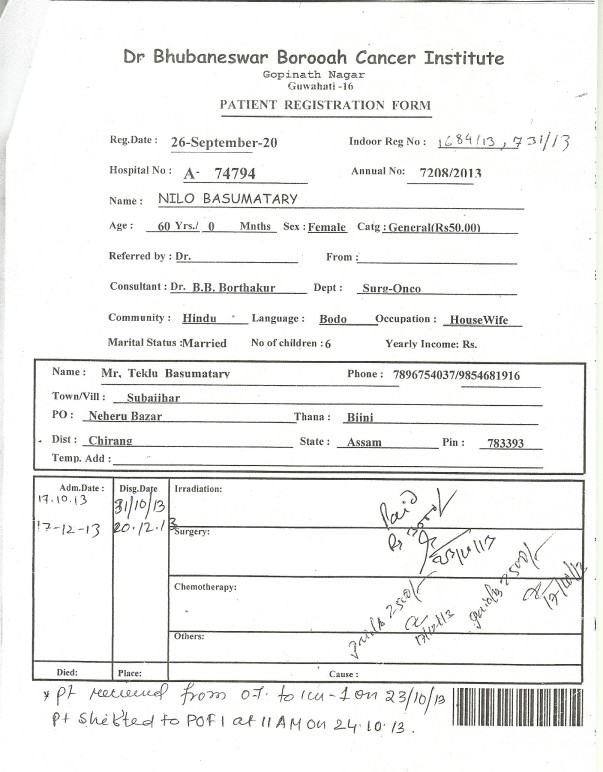 Dr Bhubaneswar Borooah Cancer Institute
Gopinath Nagar
Guwahati -16
PATIENT REGISTRATION FORM
Reg.Date : 26-September-20 Indoor Reg No : 1684/13, 731/13
Hospital No : A- 74794 Annual No: 7208/2013
Name : NILO BASUMATARY
Age : 60 Yrs./ 0 Mnths Sex : Female Catg : General(Rs50.00)
Referred by : Dr. From :
Consultant : Dr. B.B. Borthakur Dept : Surg-Onco
Community : Hindu Language : Bodo Occupation : HouseWife
Marital Status :Married No of children :6 Yearly Income: Rs.
Name : Mr. Teklu Basumatary Phone : 7896754037/9854681916
Town/Vill : Subaijhar
PO : Neheru Bazar Thana : Bijni
Dist : Chirang State : Assam Pin : 783393
Temp. Add :
Adm.Date : Disg.Date Irradiation:
17.10.13 31/10/13
17-12-13 20.12.13
Paid
Rs 3000/
Surgery:
Chemotherapy:
paid Rs 2500/-
paid Rs 2500/-
Others:
Died: Place: Cause :
* pt received from O.T. to ICU-1 on 23/10/13
pt shifted to POF1 at 11 AM on 24.10.13.